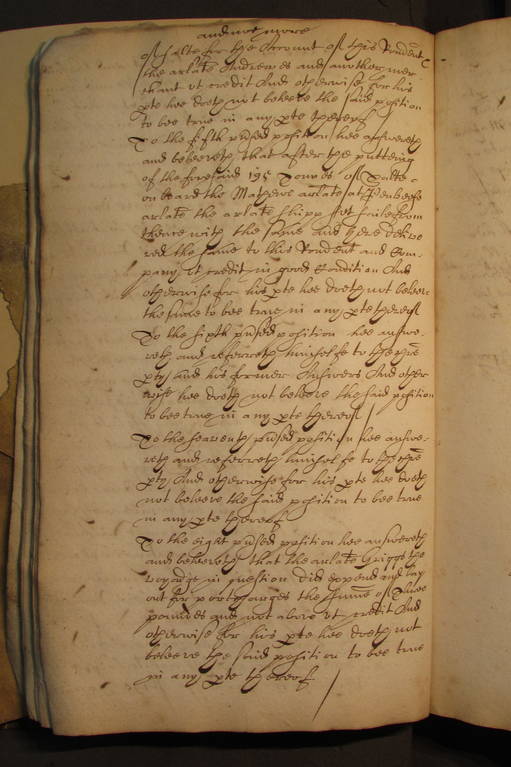 and not more
of salte for the Account of this Rendent
the arlate Andrewes and another mer
chant ut credit And otherwise for his
pte hee doeth not beleeve the said position
to bee true in any pte thereof
To the fifth position hee answereth
and beleeveth that after the putting
of the foresaid 195 Tonnes of Salte
on board the Mathew arlate at
arlate the arlate shipp sailed from
thence with the same and here delive
red the same to this Rendent and Com-
pany ut credit in good Condition And
otherwise for his pte hee doeth not beleeve
the same to bee true in any pte thereof
To the sixth position hee answe-
reth and referreth himselfe to the
and his former Answers And other
wise hee doeth not beleeve the said position
to bee true in any pte thereof
To the seaventh position hee answe-
reth and referreth himselfe to the
And otherwise for his pte hee doeth
not beleeve the said position to bee true
in any pte thereof
To the eight position hee answereth
and beleeveth that the arlate Griggs the
voyadge in question did expend and lay
out for portcharges the summe of three
poundes and not above ut credit And
otherwise for his pte hee doeth not
beleeve the said position to bee true
in any pte thereof